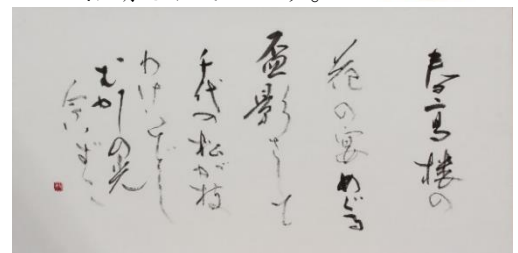 春高楼の
花の宴めぐる
盃影さして
千代の松が枝
わけいでし
むかしの光
今いずこ